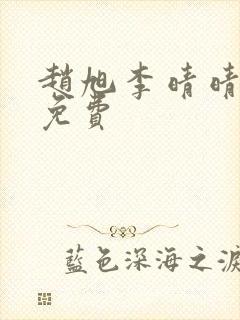 趙旭李晴晴
免費
藍色深海之淚